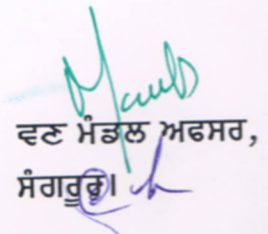 ਵਣ ਮੰਡਲ ਅਫਸਰ,
ਸੰਗਰੂਰ।